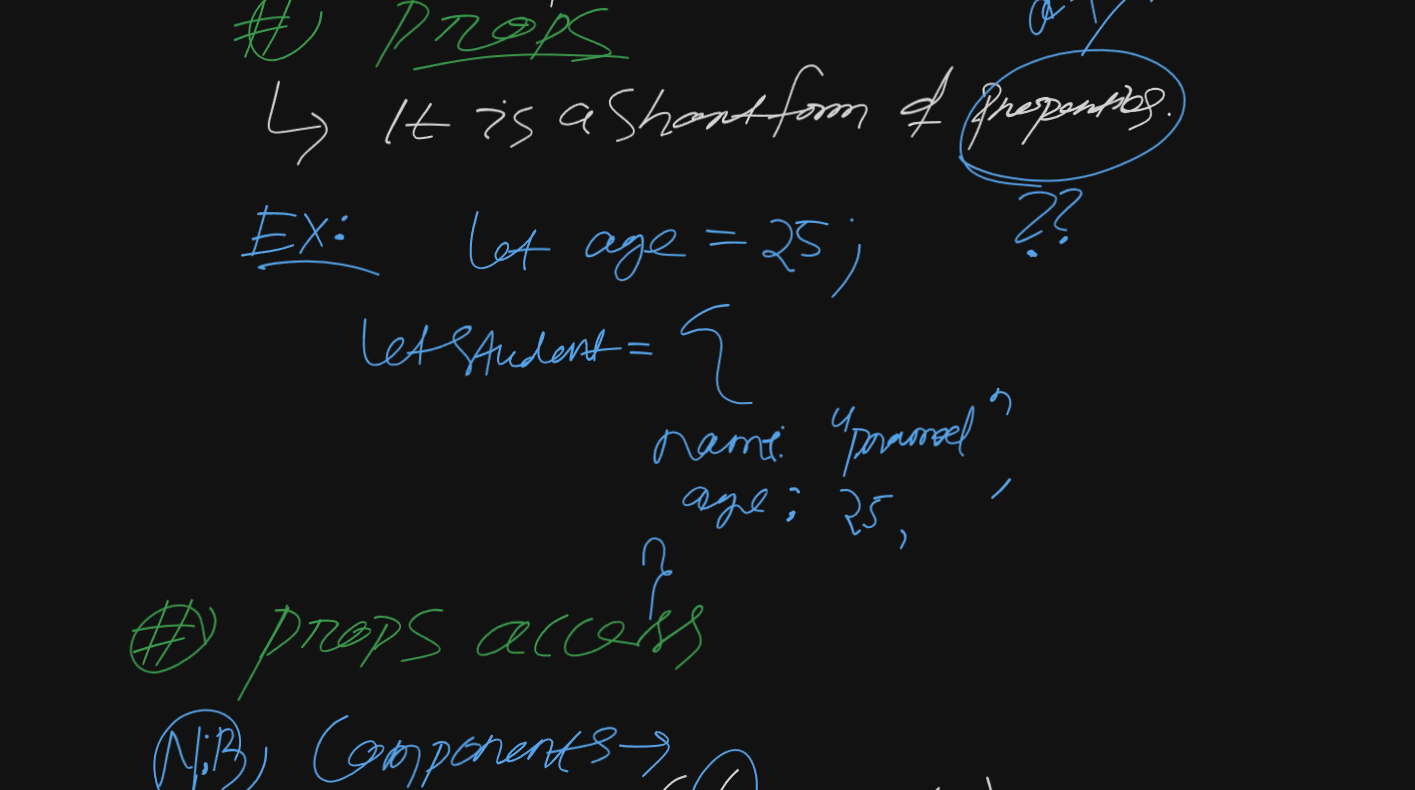 #) Props
↳ It is a Short form of properties.
??
EX: let age = 25;
let student = {
name: "pramod",
age: 25,
}
#) props access
N:B, Components →